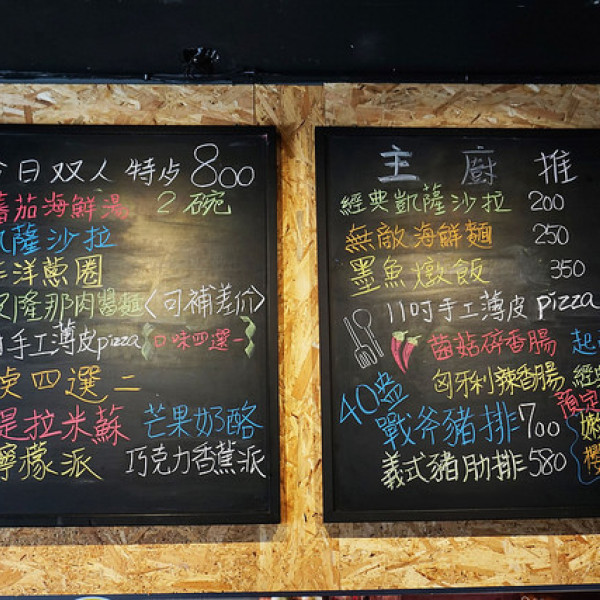 今日双人 特歺 800
蕃茄海鮮湯 2碗
凱薩沙拉
炸洋蔥圈
隆那肉醬麵〈可補差價〉
吋手工薄皮pizza 口味四選一
四選二
提拉米蘇 芒果奶酪
檸檬派 巧克力香蕉派
主廚推
經典凱薩沙拉 200
無敵海鮮麵 250
墨魚燉飯 350
11吋手工薄皮pizza
菌菇碎香腸 起
匈牙利辣香腸 經
預定
40盎
戰斧豬排 700
義式豬肋排 580